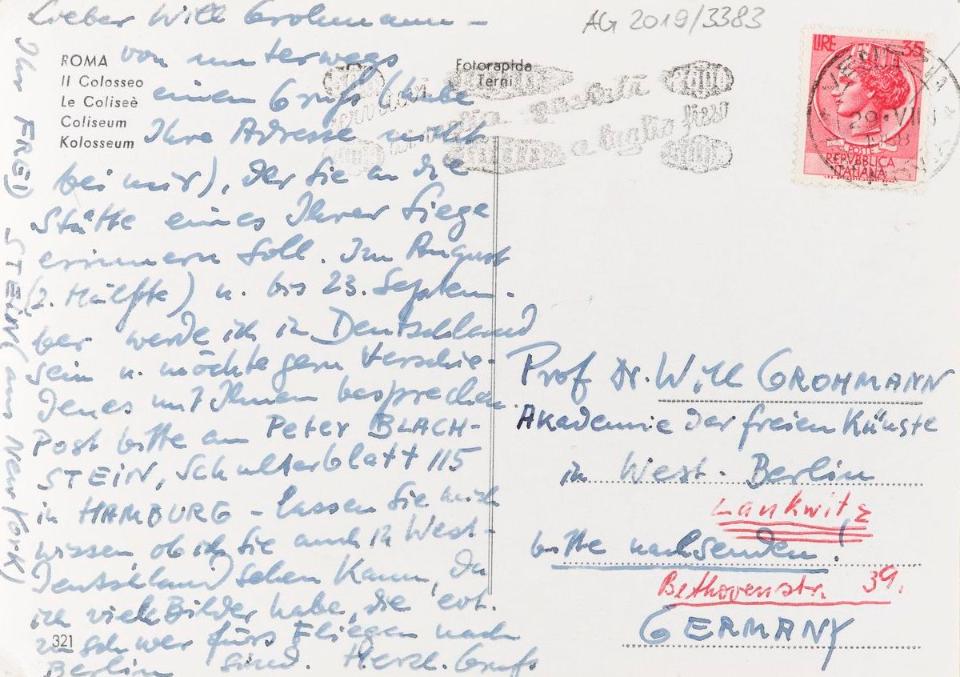 AG 2019/3383
ROMA
Il Colosseo
Le Coliseè
Coliseum
Kolosseum
Fotorapida
Terni
LIRE 35
POSTE
REPVBBLICA
ITALIANA
Lieber Will Grohmann –
von unterwegs
einen Gruß (habe
Ihre Adresse nicht
bei mir), der Sie an die
Stätte eines Ihrer Siege
erinnern soll. Im August
(2. Hälfte) u. bis 23. Septem-
ber werde ich in Deutschland
sein u. möchte gern Verschie-
denes mit Ihnen besprechen.
Post bitte an Peter BLACH-
STEIN, Schulterblatt 115
in HAMBURG – Lassen Sie mich
wissen ob ich Sie auch in West-
Deutschland sehen kann, da
ich viele Bilder habe, die evt.
zu schwer fürs Fliegen nach
Berlin sind. Herzl. Gruß
Ihr FRED STEIN (aus New York)
321
Prof Dr. Will GROHMANN
Akademie der freien Künste
in West-Berlin
Lankwitz
bitte nachsenden!
Bethovenstr 39.
GERMANY